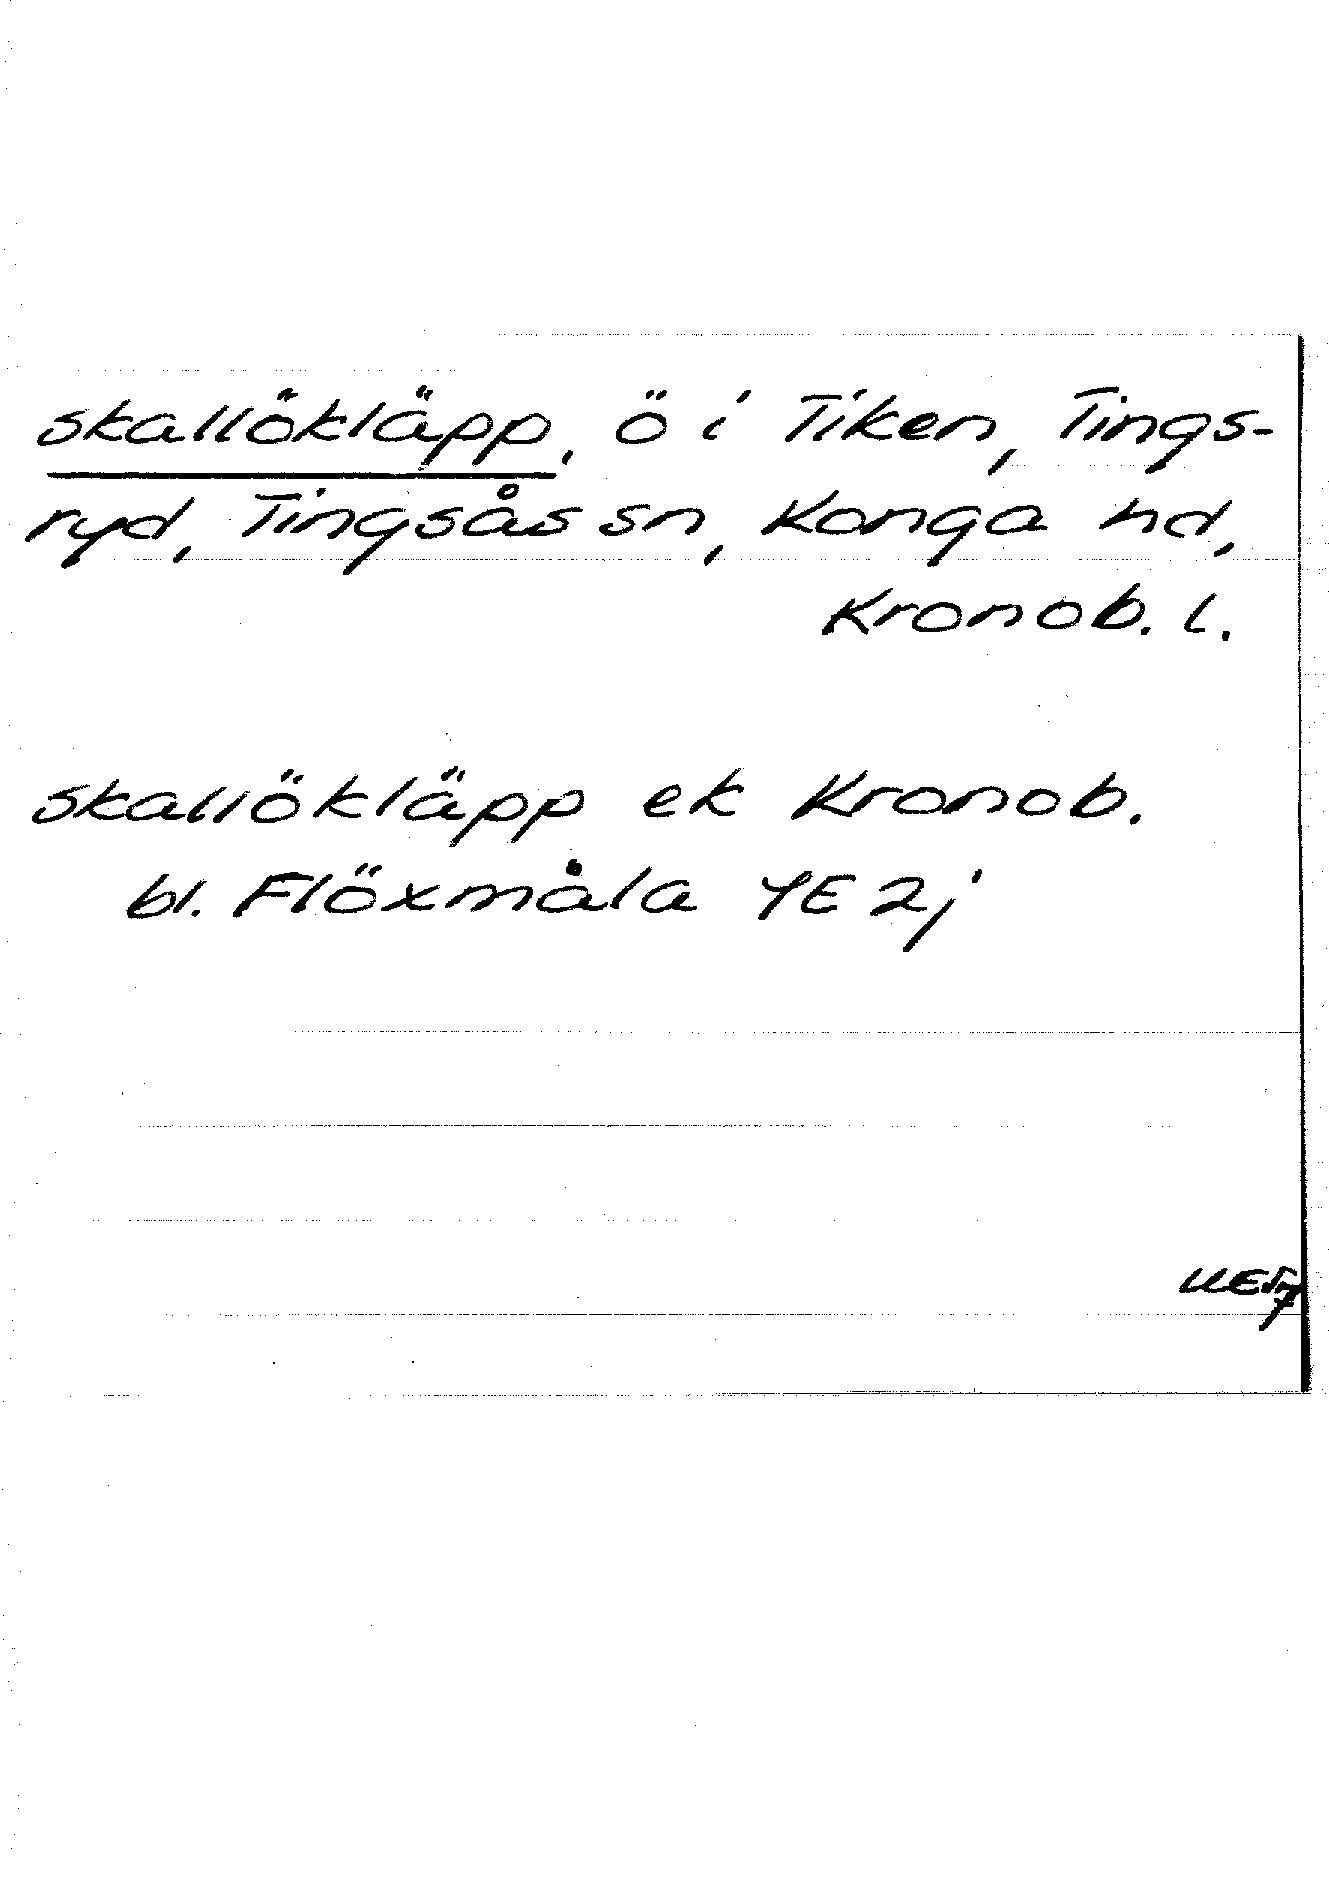 skallökläpp, ö i Tiken, Tings-
ryd, Tingsås sn, Konga hd,
Kronob. l.
skallökläpp ek Kronob.
bl. Flöxmåla 4E 2j